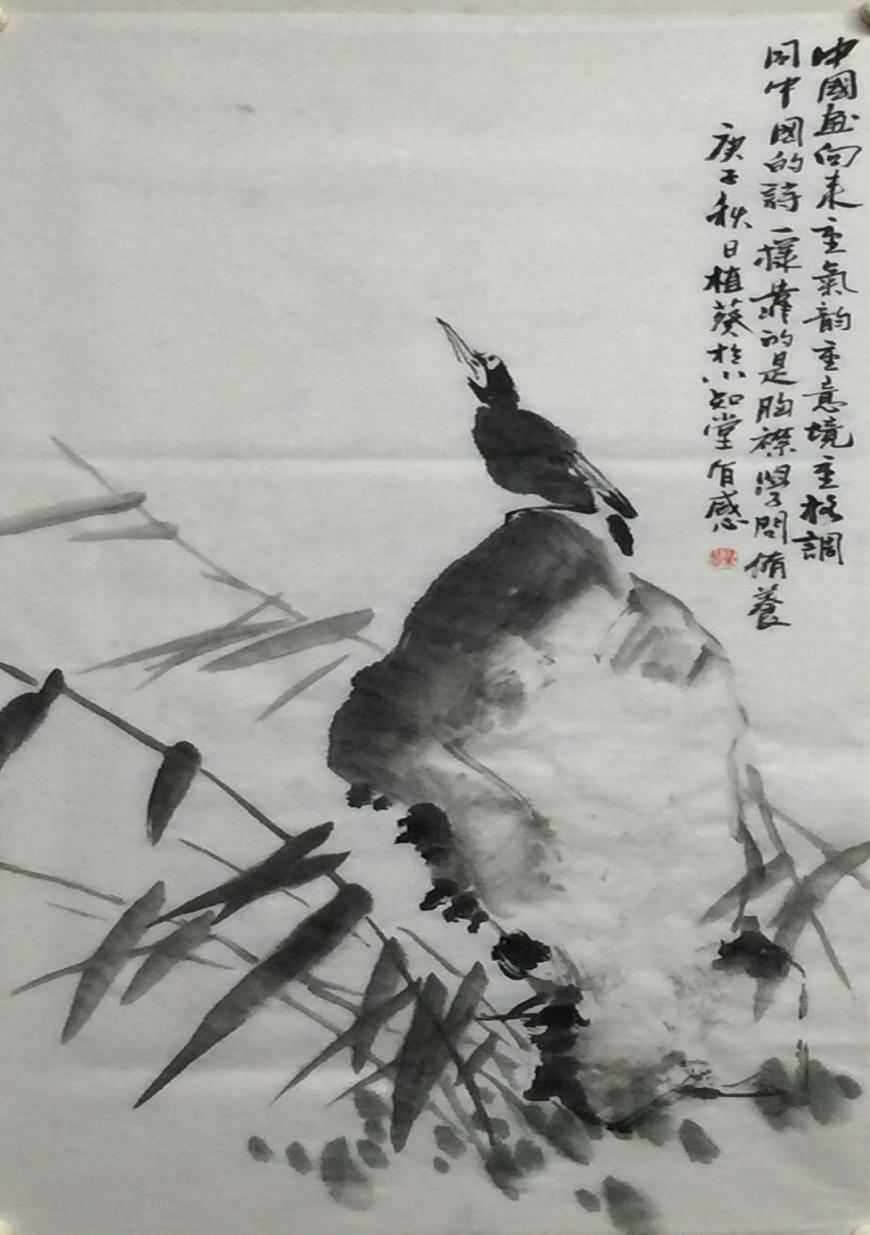 中國画向来重氣韵重意境重格調
同中國的詩一樣靠的是胸襟學問脩養
庚子秋日植葵於小知堂有感